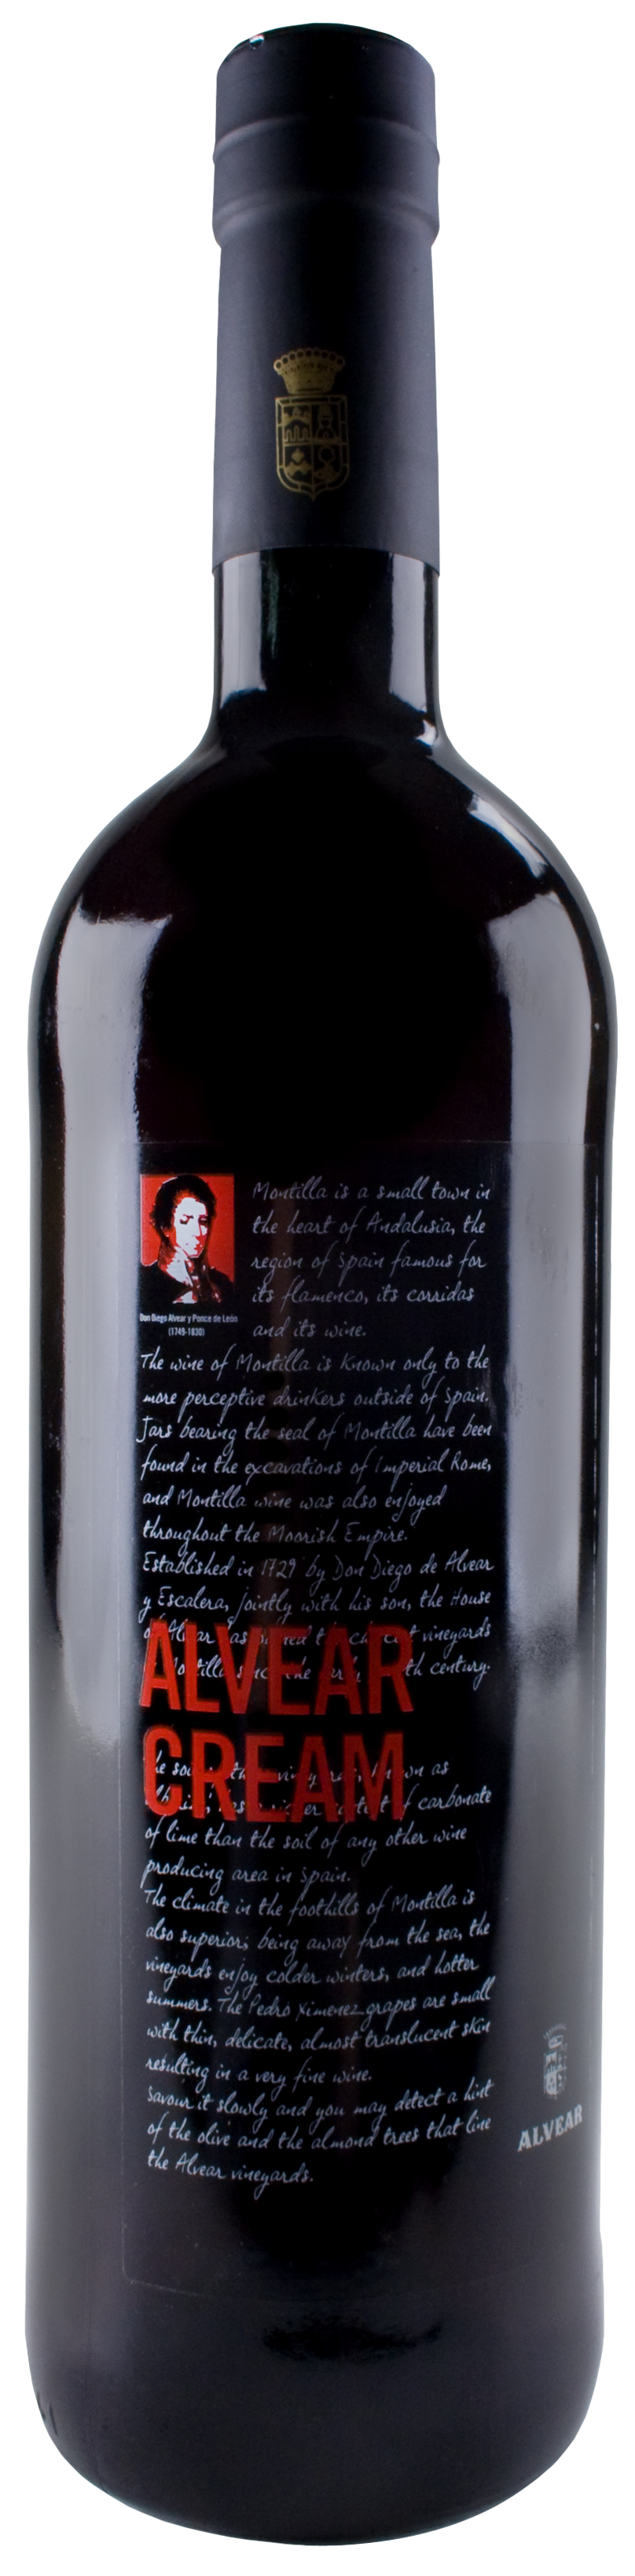 Montilla is a small town in
the heart of Andalusia, the
region of Spain famous for
its flamenco, its corridas
and its wine.
Don Diego Alvear y Ponce de León
(1749-1830)
The wine of Montilla is known only to the
more perceptive drinkers outside of Spain.
Jars bearing the seal of Montilla have been
found in the excavations of Imperial Rome,
and Montilla wine was also enjoyed
throughout the Moorish Empire.
Established in 1729 by Don Diego de Alvear
y Escalera, jointly with his son, the House
of Alvear has the vineyards
Montilla since the century.
ALVEAR
CREAM
The soil as
of carbonate
of lime than the soil of any other wine
producing area in Spain.
The climate in the foothills of Montilla is
also superior; being away from the sea, the
vineyards enjoy colder winters, and hotter
summers. The Pedro Ximenez grapes are small
with thin, delicate, almost translucent skin
resulting in a very fine wine.
Savour it slowly and you may detect a hint
of the olive and the almond trees that line
the Alvear vineyards.
ALVEAR